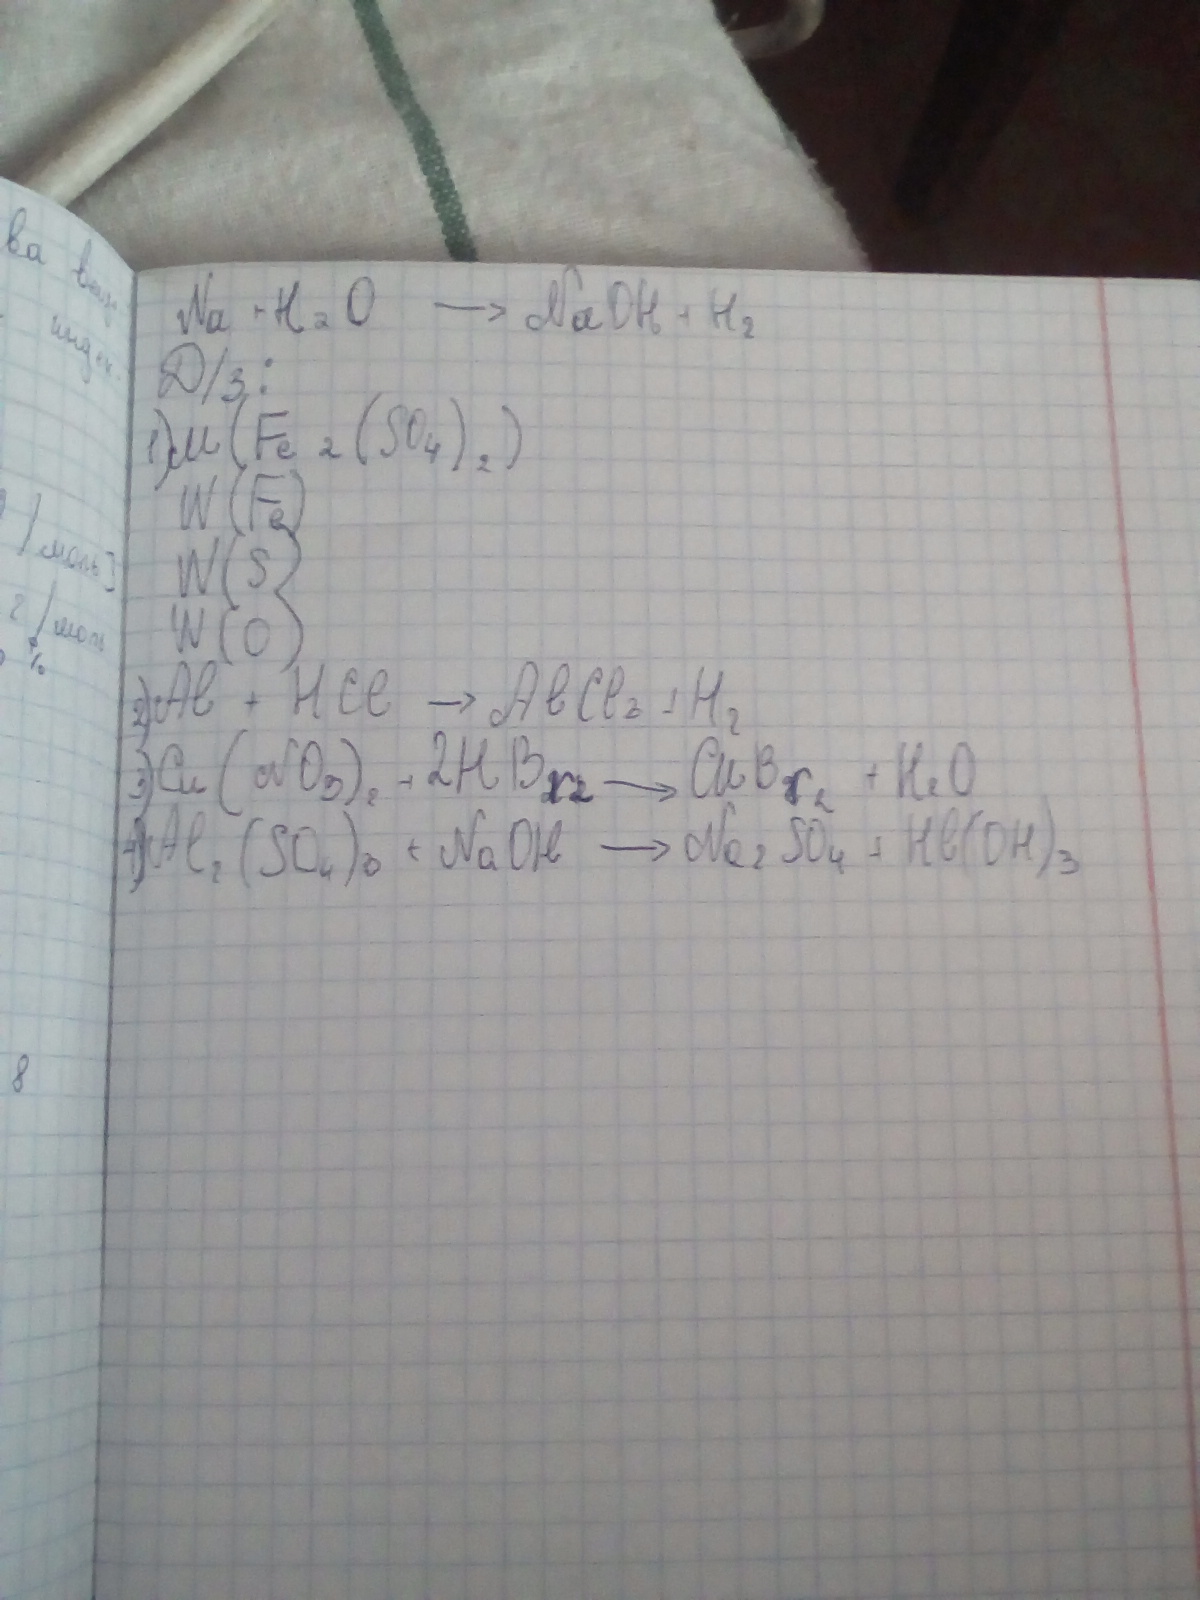 ва виз
индек.
/моль]
г/моль
%
8
Na + H2O → NaOH + H2
Д/з:
1) M(Fe2(SO4)2)
W(Fe)
W(S)
W(O)
2) Al + HCl → AlCl3 + H2
3) Cu(NO3)2 + 2HBr2 → CuBr2 + H2O
4) Al2(SO4)3 + NaOH → Na2SO4 + Hl(OH)3